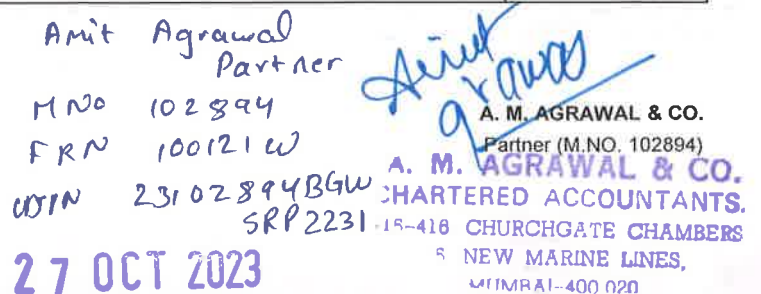 Amit Agrawal
Partner
M No 102894
FRN 100121W
UDIN 23102894BGW
SRP2231
27 OCT 2023
Amit
Agrawal
A. M. AGRAWAL & CO.
Partner (M.NO. 102894)
A. M. AGRAWAL & CO.
CHARTERED ACCOUNTANTS.
15-416 CHURCHGATE CHAMBERS
5 NEW MARINE LINES,
MUMBAI-400 020